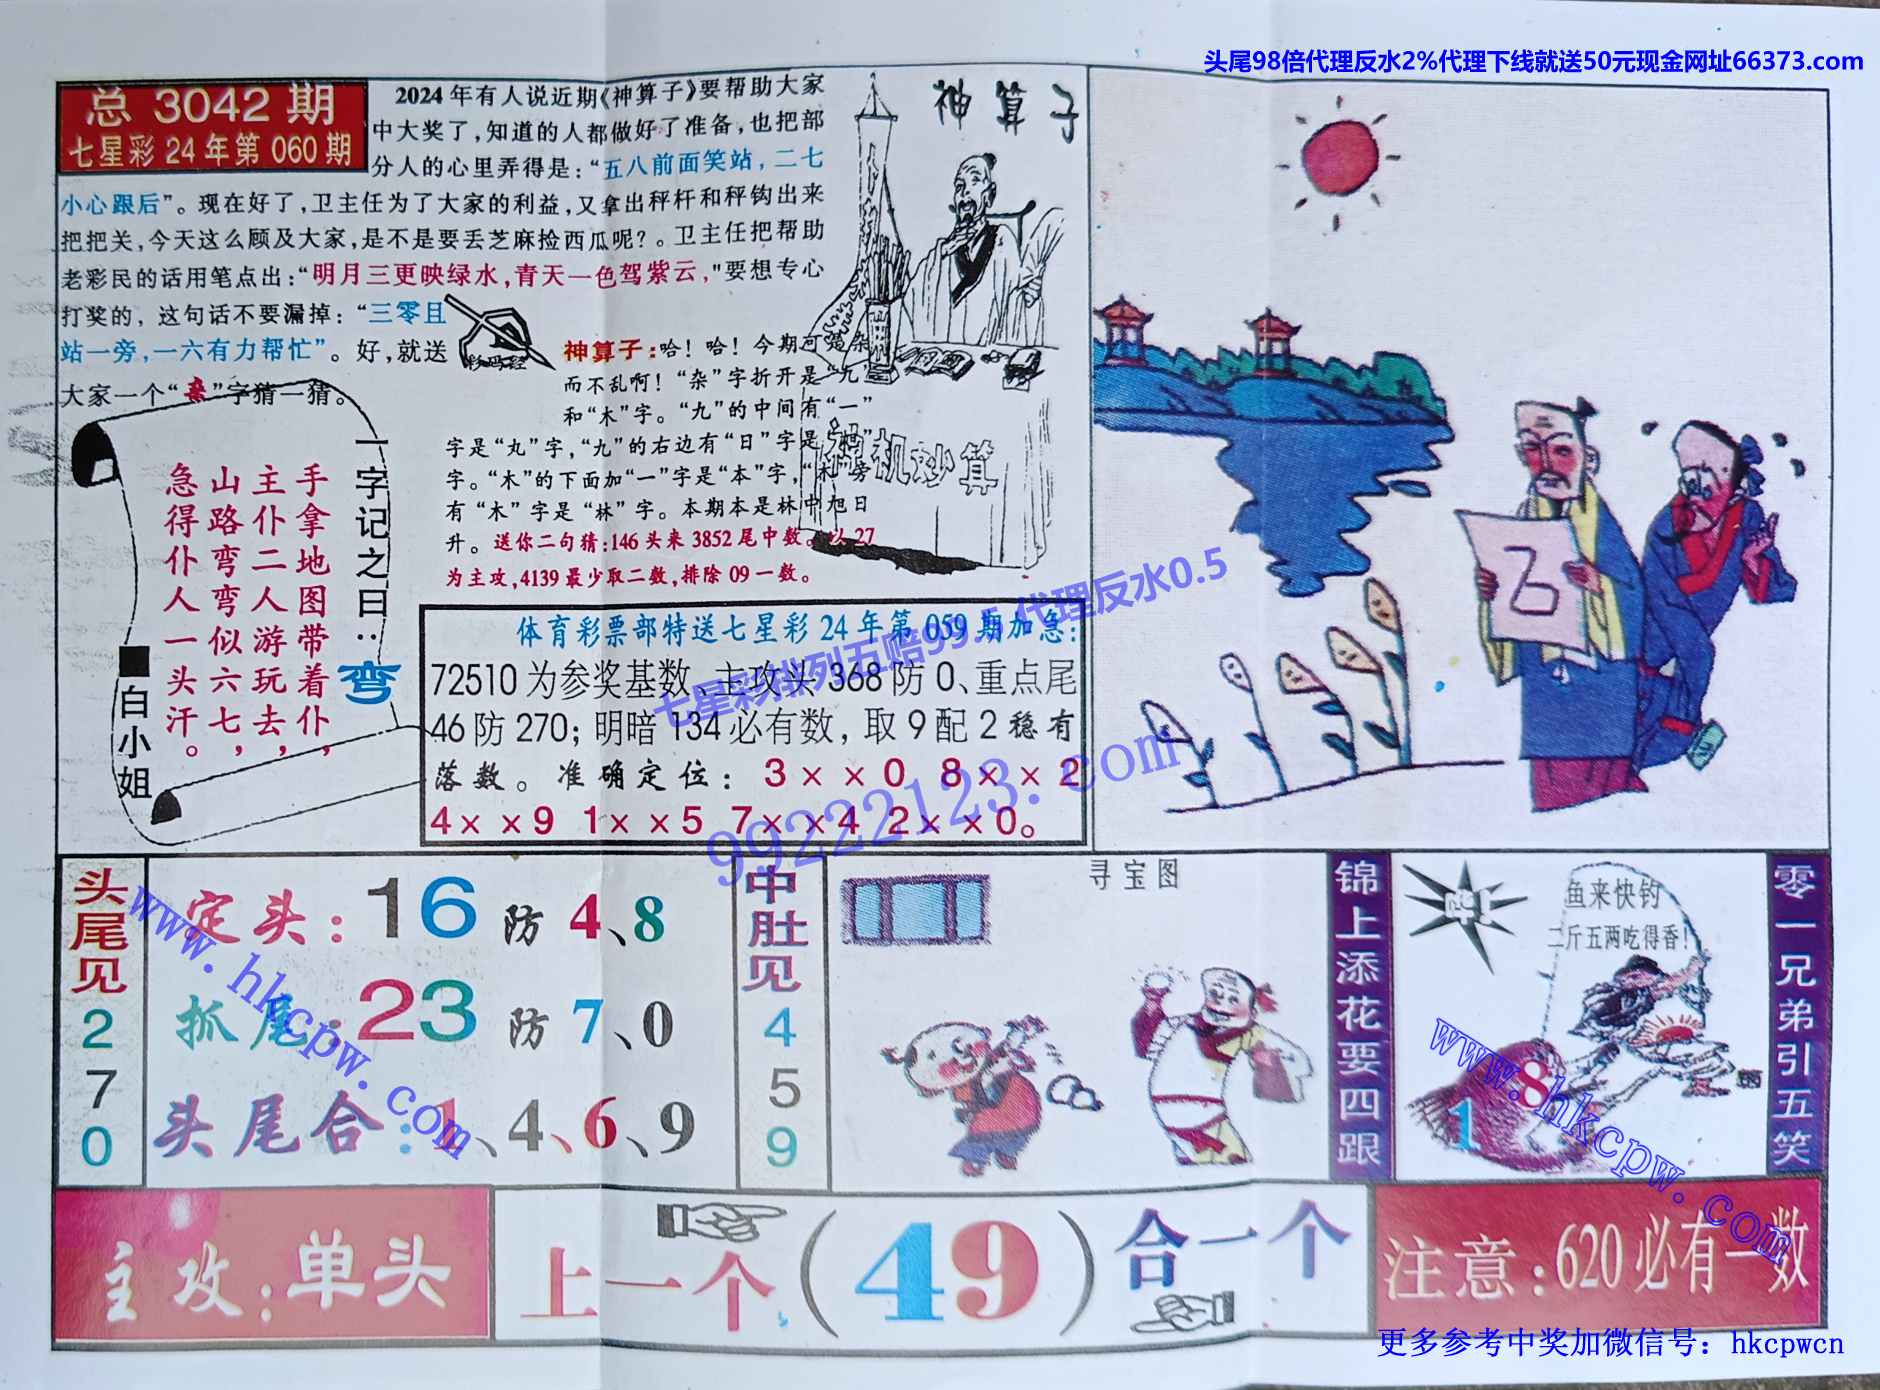 头尾98倍代理反水2%代理下线就送50元现金网址66373.com
总 3042 期
七星彩 24 年第 060 期
2024 年有人说近期《神算子》要帮助大家
中大奖了，知道的人都做好了准备，也把部
分人的心里弄得是：“五八前面笑站，二七
小心跟后”。现在好了，卫主任为了大家的利益，又拿出秤杆和秤钩出来
把把关，今天这么顾及大家，是不是要丢芝麻捡西瓜呢？。卫主任把帮助
老彩民的话用笔点出：“明月三更映绿水，青天一色驾紫云，"要想专心
打奖的，这句话不要漏掉：“三零且
站一旁，一六有力帮忙”。好，就送
大家一个“杂”字猜一猜。
彩码经
神算子
神机妙算
神算子：哈！哈！今期可是杂
而不乱啊！“杂”字折开是“九”
和“木”字。“九”的中间有“一”
字是“丸”字，“九”的右边有“日”字是“旭”
字。“木”的下面加“一”字是“本”字，“木”旁
有“木”字是“林”字。本期本是林中旭日
升。送你二句猜：146 头来 3852 尾中数。以 27
为主攻，4139 最少取二数，排除 09 一数。
一字记之曰：弯
手拿地图带着仆，
主仆二人游玩去，
山路弯弯似六七，
急得仆人一头汗。
■白小姐
体育彩票部特送七星彩 24 年第 059 期加急：
72510 为参奖基数、主攻头 368 防 0、重点尾
46 防 270；明暗 134 必有数，取 9 配 2 稳有
落数。准确定位：3××0 8××2
4××9 1××5 7××4 2××0。
七星彩排列五赔99.5 代理反水0.5
99222123.com
己
头尾见270
定头：16 防 4、8
抓尾：23 防 7、0
头尾合：1、4、6、9
www.hkcpw.com
中肚见459
寻宝图
锦上添花要四跟
鱼来快钓
二斤五两吃得香！
18
www.hkcpw.com
零一兄弟引五笑
主攻：单头
上一个（49）合一个
注意：620 必有一数
更多参考中奖加微信号：hkcpwcn